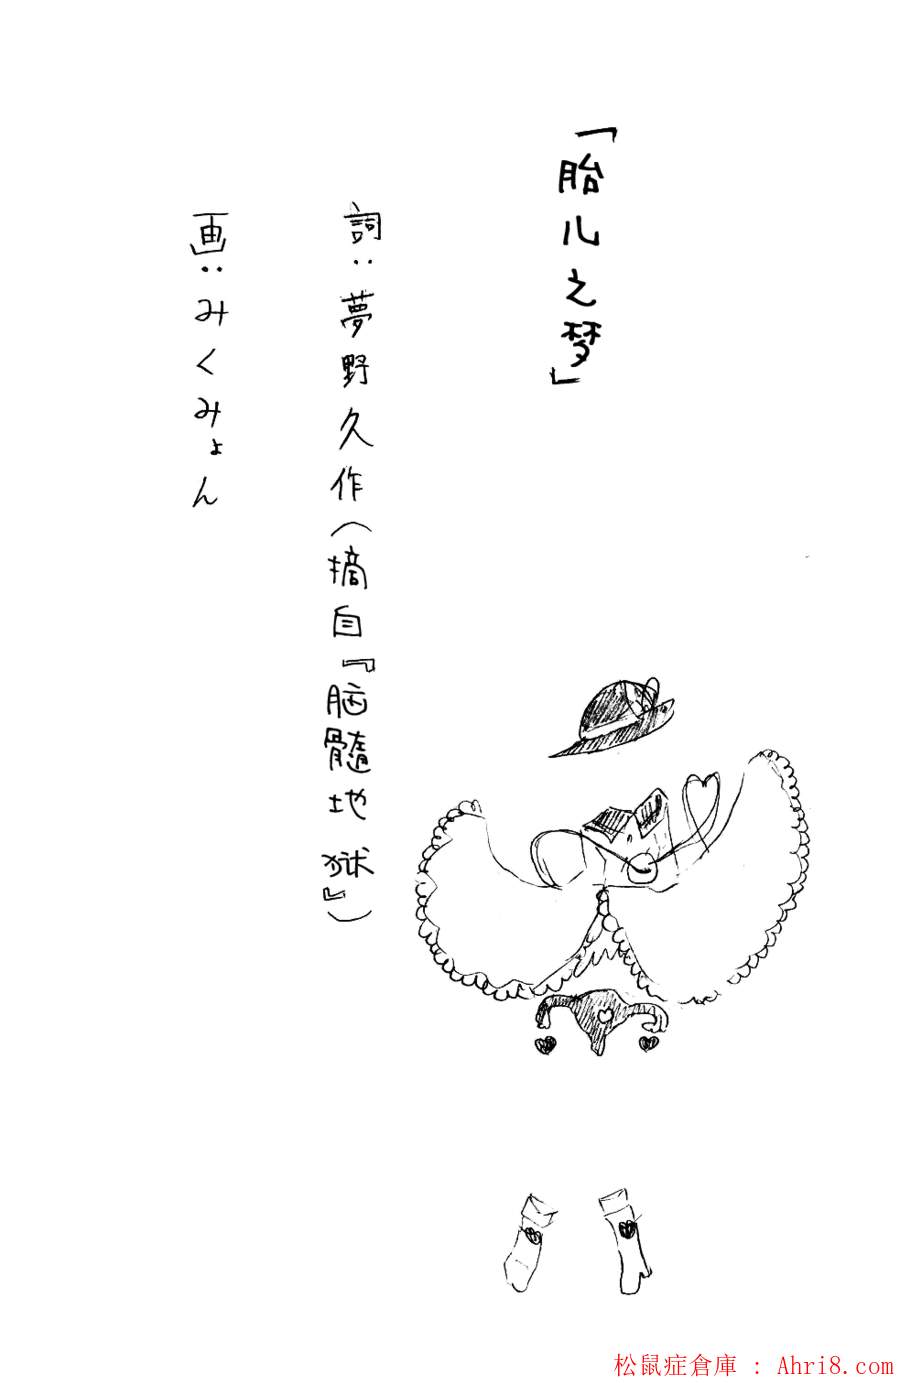 「胎儿之梦」
詞：夢野久作（摘自『脳髓地獄』）
画：みくみょん
松鼠症倉庫 : Ahri8.com